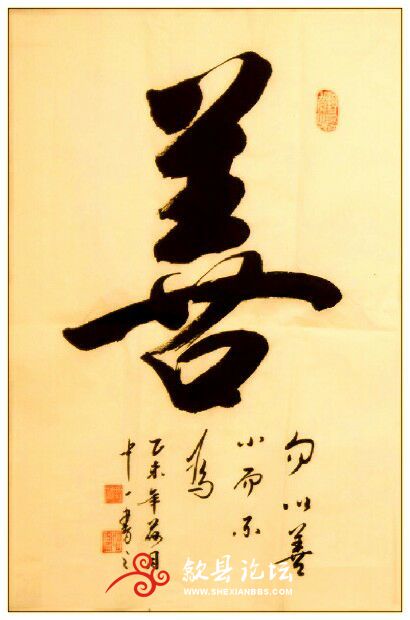 善
勿以善
小而不
為
乙未年月
中一書之
歙县论坛
WWW.SHEXIANBBS.COM